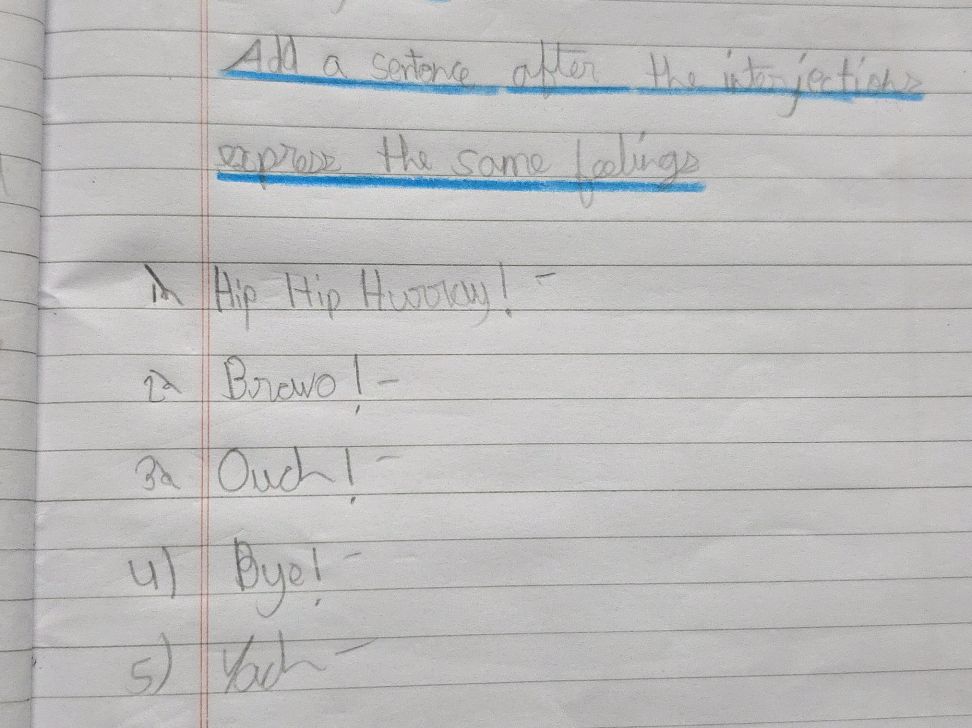 Add a sentence after the interjections
express the same feelings
1) Hip Hip Hurray! -
2) Bravo! -
3) Ouch! -
4) Bye! -
5) Yach -